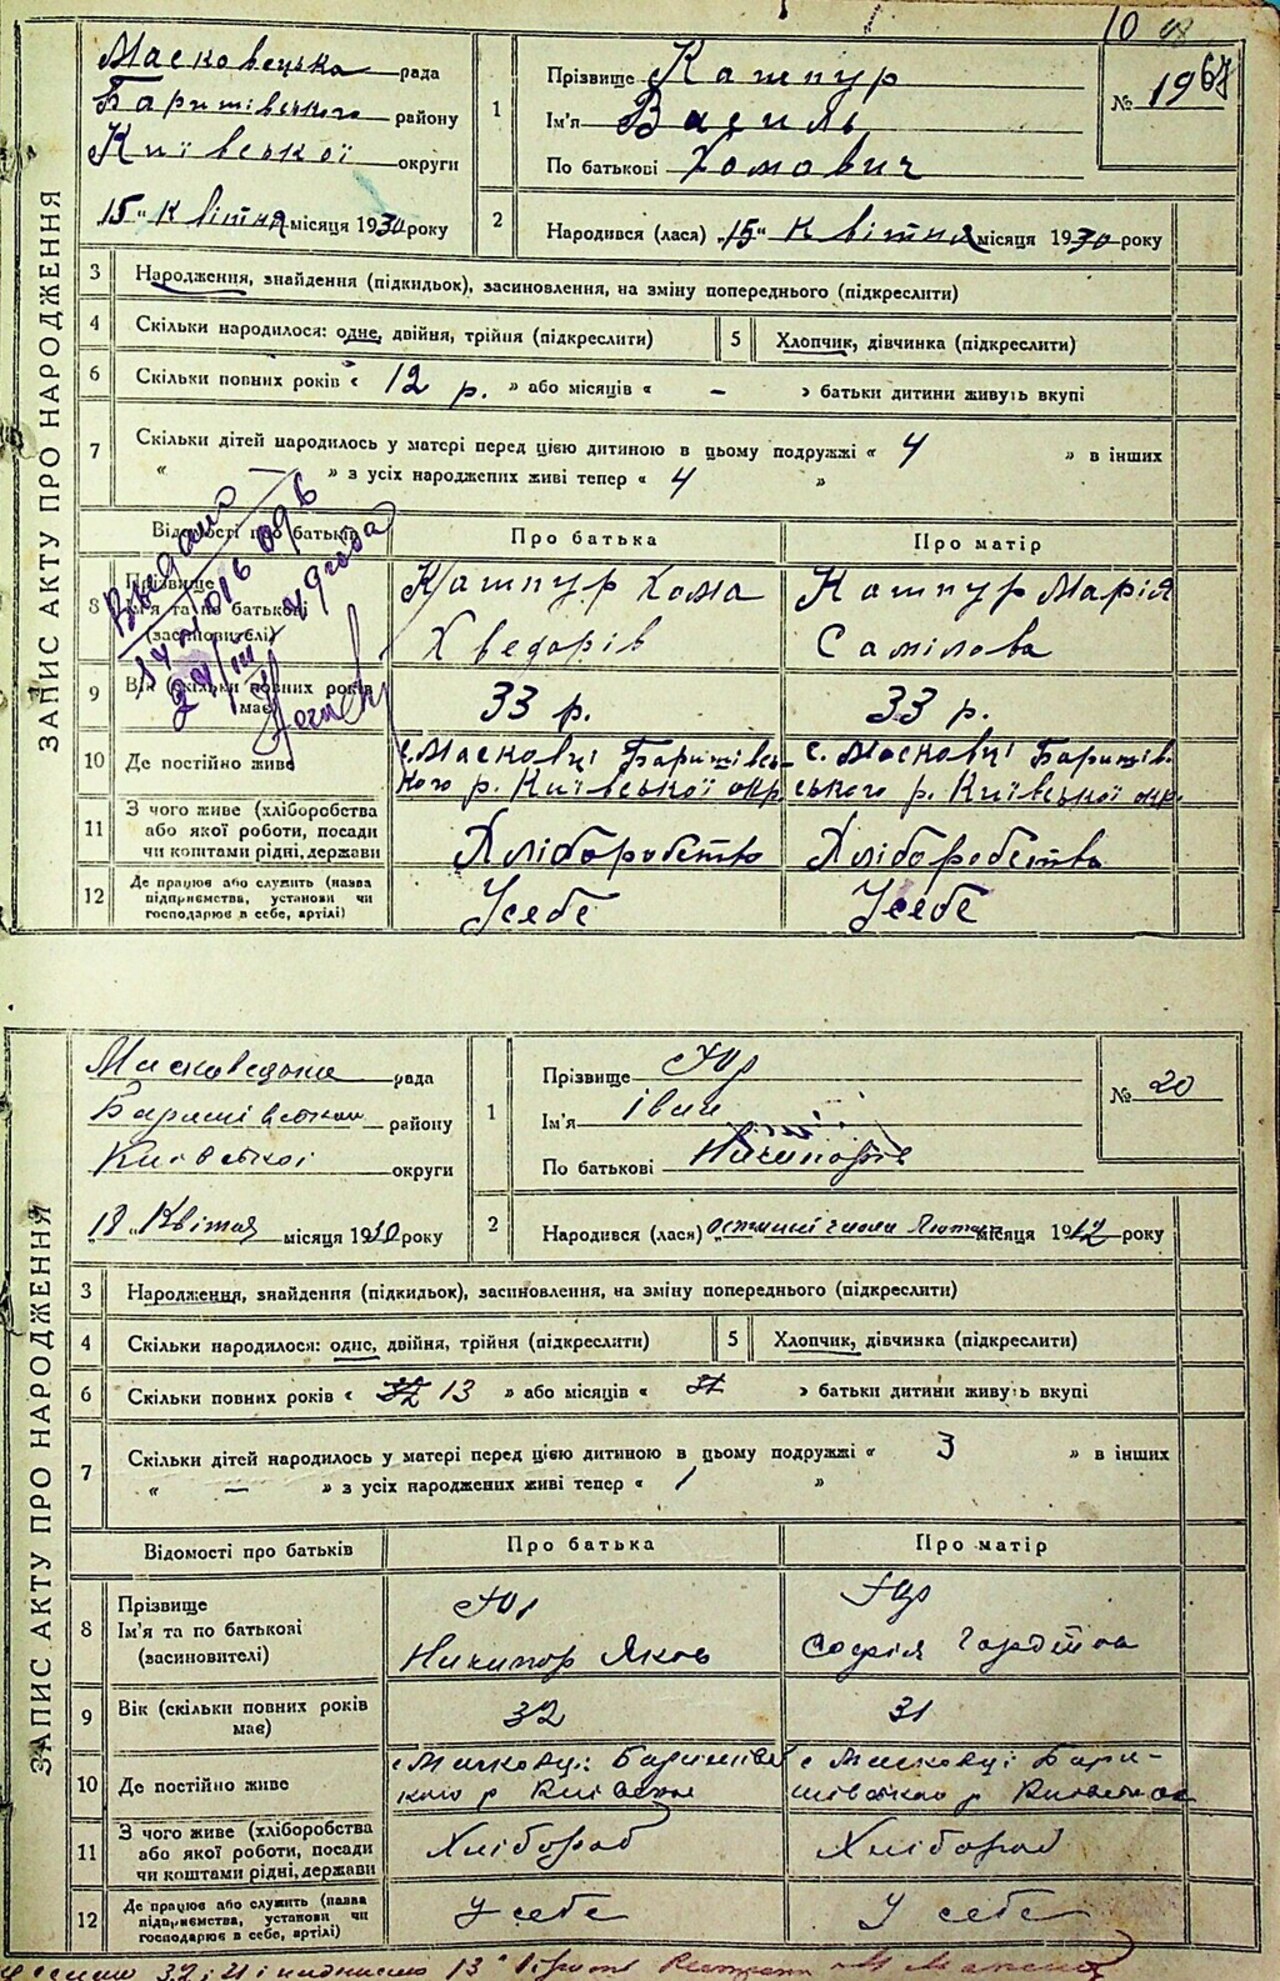 10 48
ЗАПИС АКТУ ПРО НАРОДЖЕННЯ
Масковецька рада
Баришівського району
Київської округи
"15" Квітня місяця 1930 року
1 Прізвище Кашпур
Ім'я Василь
По батькові Хомович
№ 19
2 Народився (лася) "15" Квітня місяця 1930 року
3 Народження, знайдення (підкидьок), засиновлення, на зміну попереднього (підкреслити)
4 Скільки народилося: одне, двійня, трійня (підкреслити) 5 Хлопчик, дівчинка (підкреслити)
6 Скільки повних років « 12 р. » або місяців « – » батьки дитини живуть вкупі
7 Скільки дітей народилось у матері перед цією дитиною в цьому подружжі « 4 » в інших
« — » з усіх народжених живі тепер « 4 »
Відомості про батьків Про батька Про матір
8 Прізвище
Ім'я та по батькові
(засиновителі)
Кашпур Хома
Хведорів
Кашпур Марія
Самілова
9 Вік (скільки повних років має) 33 р. 33 р.
10 Де постійно живе
с. Масковці Баришівсь-
кого р. Київської окр.
с. Масковці Баришів-
ського р. Київської окр.
11 З чого живе (хліборобства
або якої роботи, посади
чи коштами рідні, держави
Хліборобство Хліборобства
12 Де працює або служить (назва
підприємства, установи чи
господарює в себе, артілі)
Усебе Усебе
ЗАПИС АКТУ ПРО НАРОДЖЕННЯ
рада
району
Київської округи
"18" Квітня місяця 1930 року
1 Прізвище Юр
Ім'я Іван
По батькові
№ 20
2 Народився (лася) місяця 1912 року
3 Народження, знайдення (підкидьок), засиновлення, на зміну попереднього (підкреслити)
4 Скільки народилося: одне, двійня, трійня (підкреслити) 5 Хлопчик, дівчинка (підкреслити)
6 Скільки повних років « 13 » або місяців « » батьки дитини живуть вкупі
7 Скільки дітей народилось у матері перед цією дитиною в цьому подружжі « 3 » в інших
« — » з усіх народжених живі тепер « 1 »
Відомості про батьків Про батька Про матір
8 Прізвище
Ім'я та по батькові
(засиновителі)
Юр
Никипор Яков
Юр
Софія
9 Вік (скільки повних років
має)
32 31
10 Де постійно живе
с Масковці Баришівсь
кого р
с Масковці Бари-
шівського р
11 З чого живе (хліборобства
або якої роботи, посади
чи коштами рідні, держави
Хлібороб Хлібороб
12 Де працює або служить (назва
підприємства, установи чи
господарює в себе, артілі)
У себе У себе